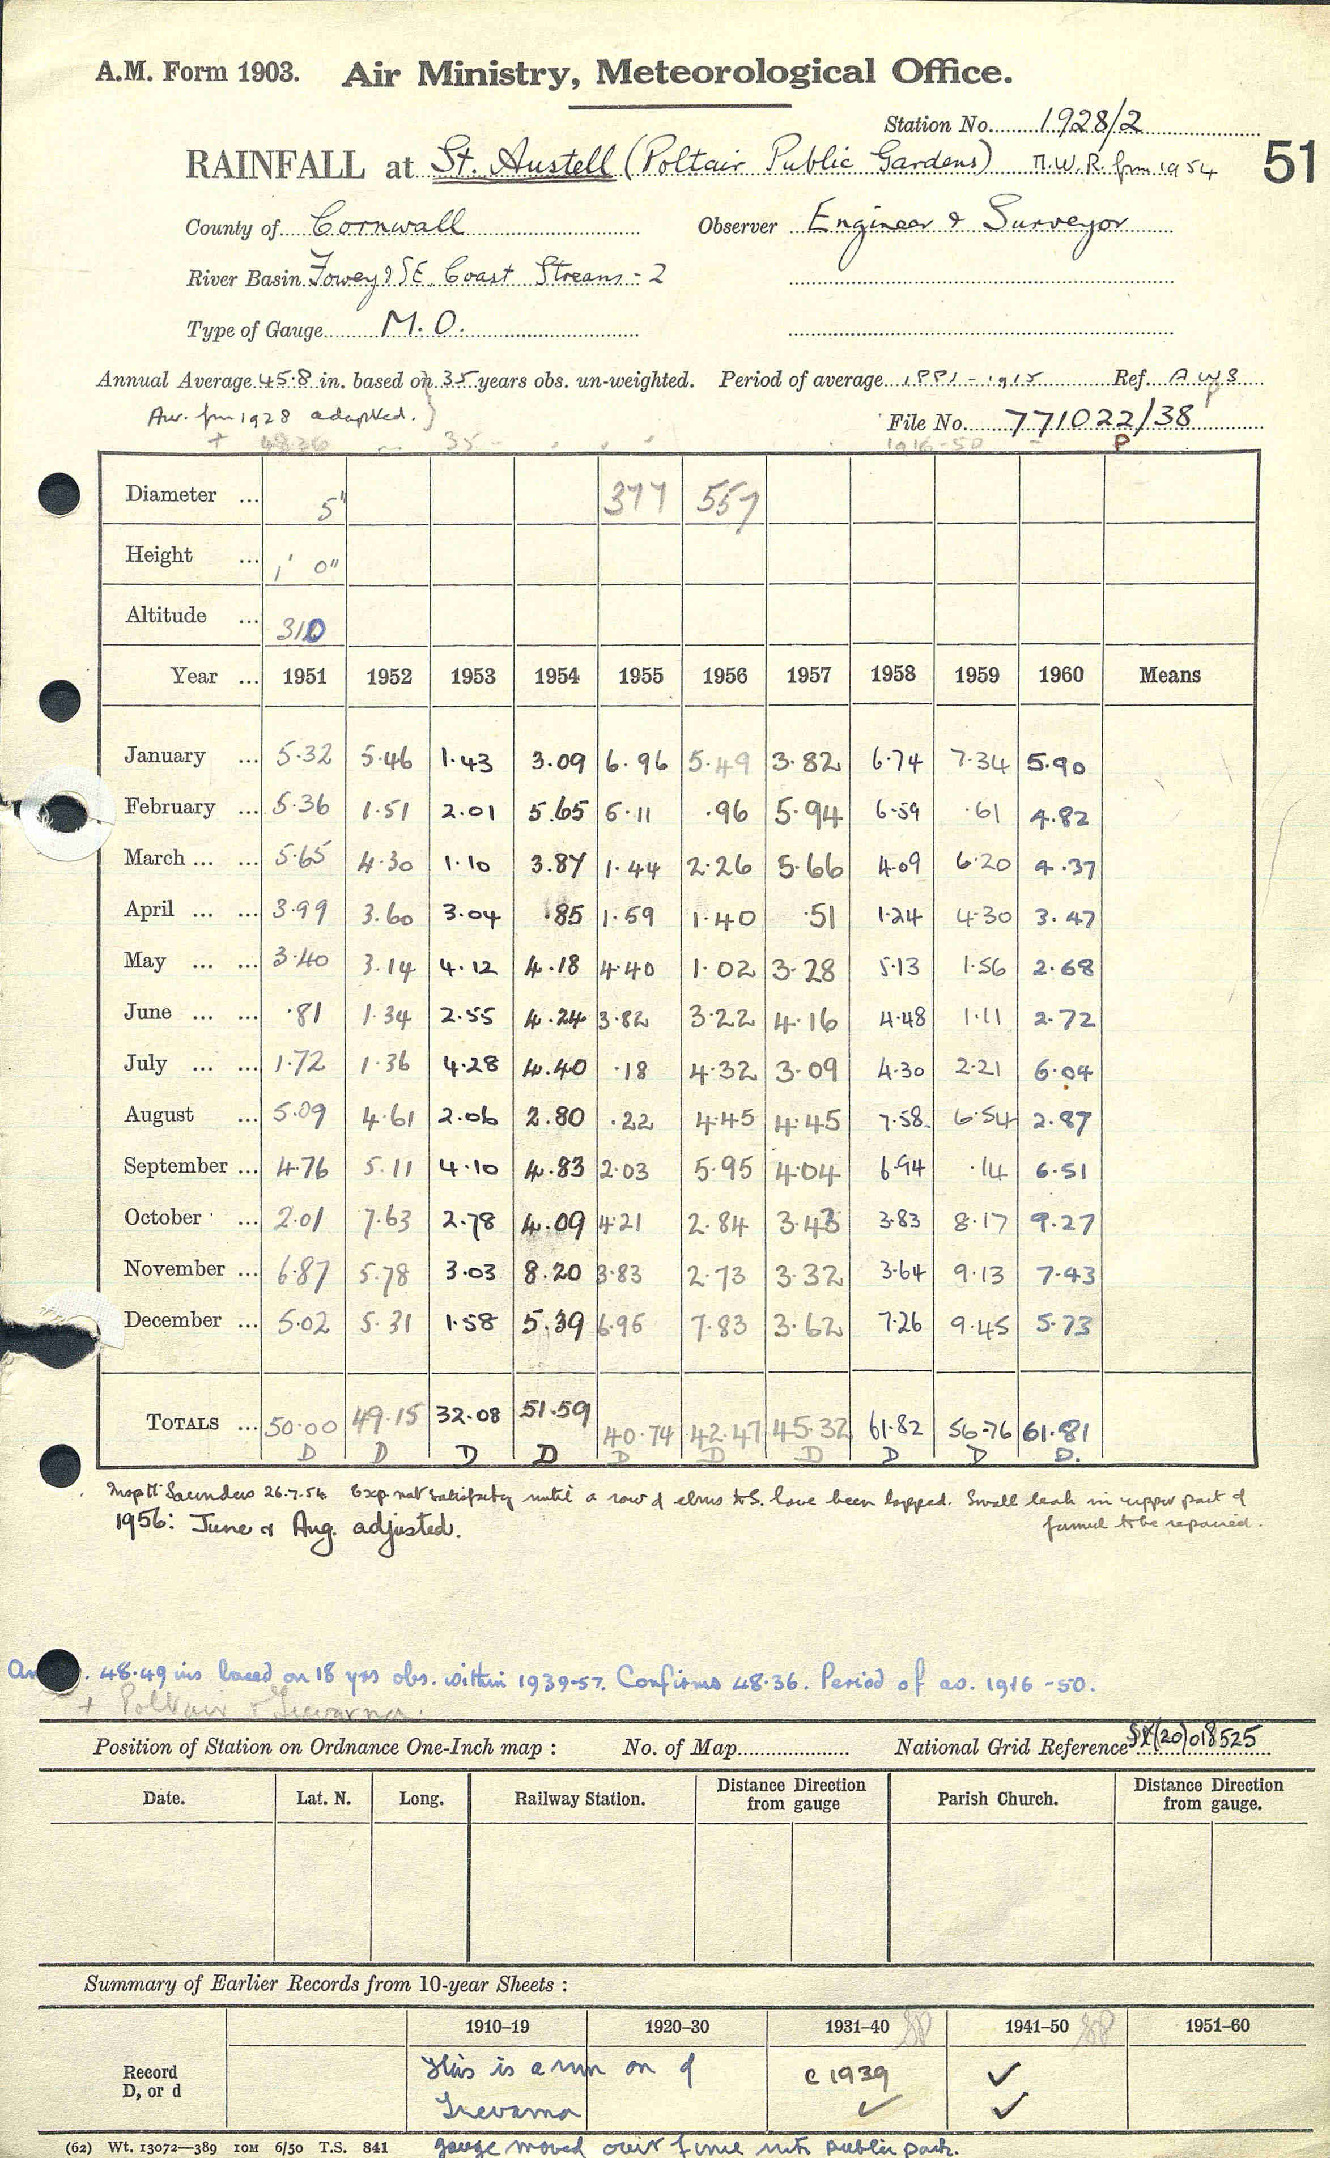 A.M. Form 1903. Air Ministry, Meteorological Office.
Station No. 1928/2
RAINFALL at St. Austell (Poltair Public Gardens) M.W.R. from 1954 51
County of Cornwall Observer Engineer & Surveyor
River Basin Fowey & S.E. Coast Streams - 2
Type of Gauge M.O.
Annual Average 45.8 in. based on 35 years obs. un-weighted. Period of average 1881-1915 Ref. AWS
Av. from 1928 adapted. } File No. 771022/38
P
+ 48.36 35 1916-50
Diameter ... 5" 377 557
Height ... 1' 0"
Altitude ... 310
Year ... 1951 1952 1953 1954 1955 1956 1957 1958 1959 1960 Means
January ... 5.32 5.46 1.43 3.09 6.96 5.49 3.82 6.74 7.34 5.90
February ... 5.36 1.51 2.01 5.65 5.11 .96 5.94 6.59 .61 4.82
March ... ... 5.65 4.30 1.10 3.87 1.44 2.26 5.66 4.09 6.20 4.37
April ... ... 3.99 3.60 3.04 .85 1.59 1.40 .51 1.24 4.30 3.47
May ... ... 3.40 3.14 4.12 4.18 4.40 1.02 3.28 5.13 1.56 2.68
June ... ... .81 1.34 2.55 4.24 3.82 3.22 4.16 4.48 1.11 2.72
July ... ... 1.72 1.36 4.28 4.40 .18 4.32 3.09 4.30 2.21 6.04
August ... 5.09 4.61 2.06 2.80 .22 4.45 4.45 7.58 6.54 2.87
September ... 4.76 5.11 4.10 4.83 2.03 5.95 4.04 6.94 .14 6.51
October ... 2.01 7.63 2.78 4.09 4.21 2.84 3.43 3.83 8.17 9.27
November ... 6.87 5.78 3.03 8.20 3.83 2.73 3.32 3.64 9.13 7.43
December ... 5.02 5.31 1.58 5.39 6.95 7.83 3.62 7.26 9.45 5.73
TOTALS ... 50.00 49.15 32.08 51.59 40.74 42.47 45.32 61.82 56.76 61.81
D D D D D D D D D D.
Insp Mr Saunders 26.7.54 Exp. not satisfactory until a row of elms to S. have been lopped. Small leak in upper part of
funnel to be repaired.
1956: June & Aug. adjusted.
48.49 ins based on 18 yrs obs. within 1939-57. Confirms 48.36. Period of av. 1916-50.
+ Poltair & Trevarna.
Position of Station on Ordnance One-Inch map : No. of Map National Grid Reference SX(20)018525
Date. Lat. N. Long. Railway Station. Distance Direction from gauge Parish Church. Distance Direction from gauge.
Summary of Earlier Records from 10-year Sheets :
1910–19 1920–30 1931–40 1941–50 1951–60
Record
D, or d
This is a run on of c 1939 ✓
Trevarna ✓ ✓
(62) Wt. 13072—389 10M 6/50 T.S. 841 gauge moved over fence into public park.